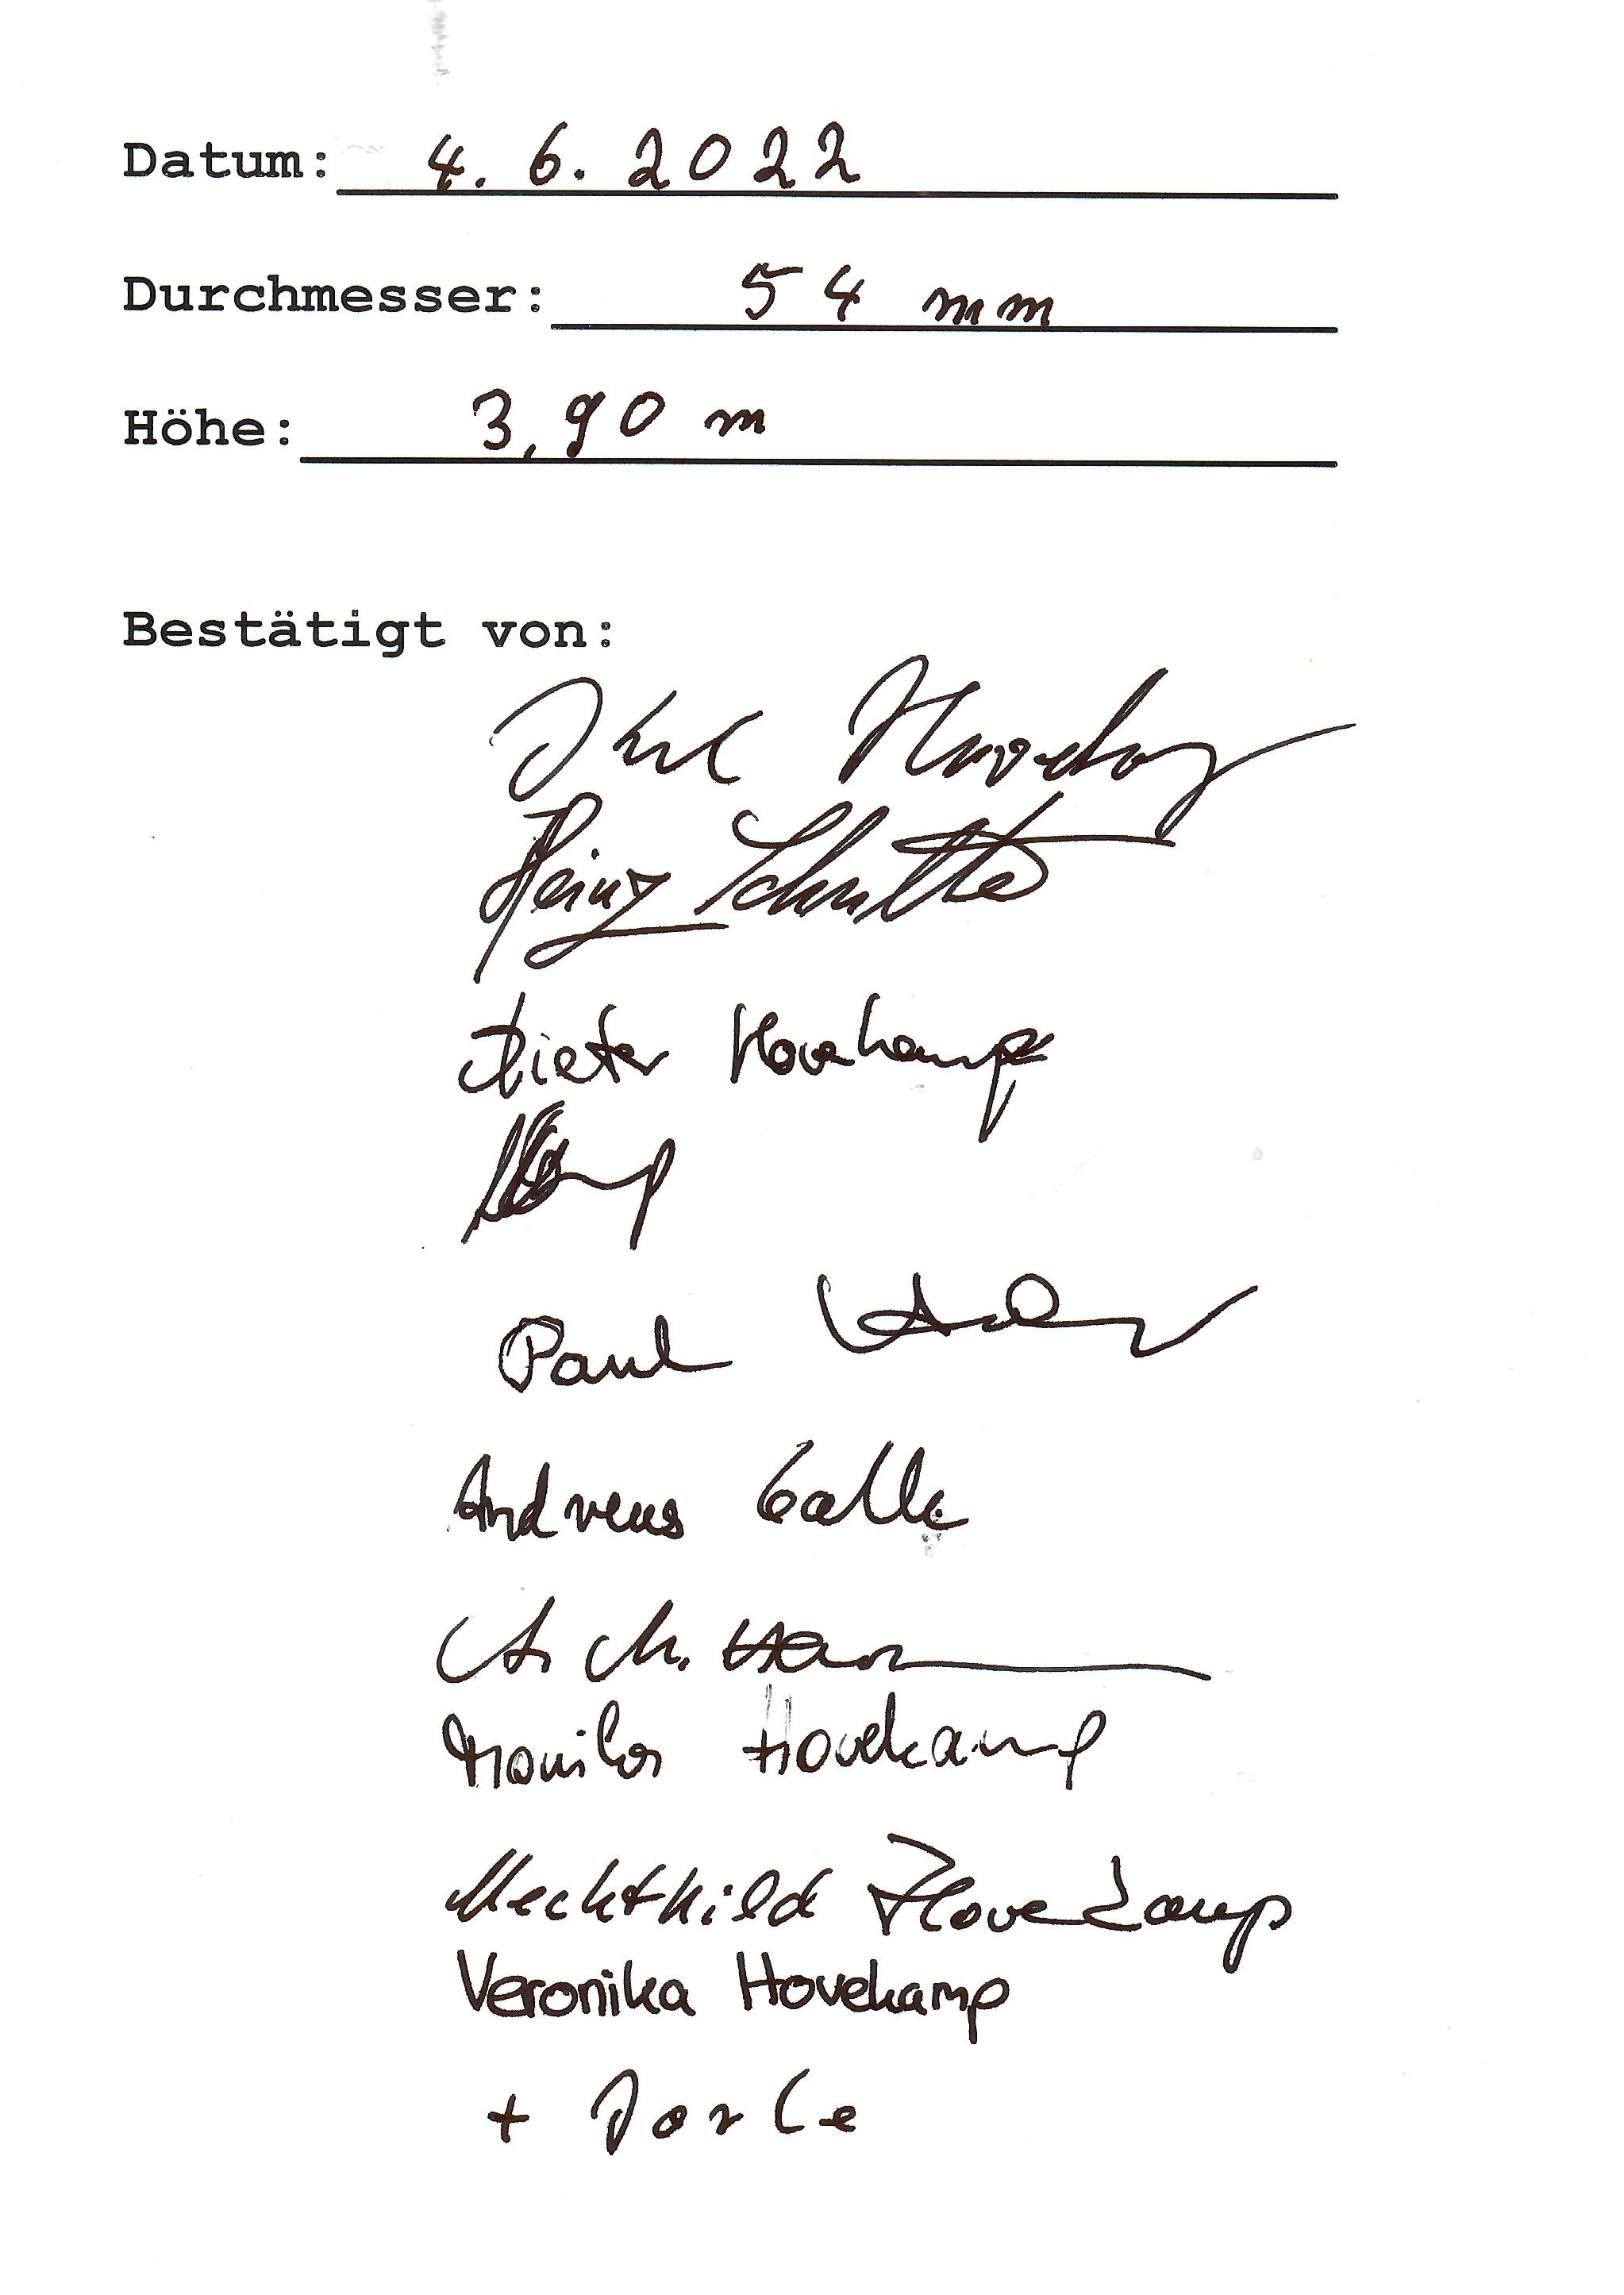 Datum: 4.6.2022
Durchmesser: 54 mm
Höhe: 3,90 m
Bestätigt von:
Heinz Schulte
Dieter Hovekamp
Paul
Andreas Galle
Monika Hovekamp
Mechthild Hovekamp
Veronika Hovekamp
+ Dorle